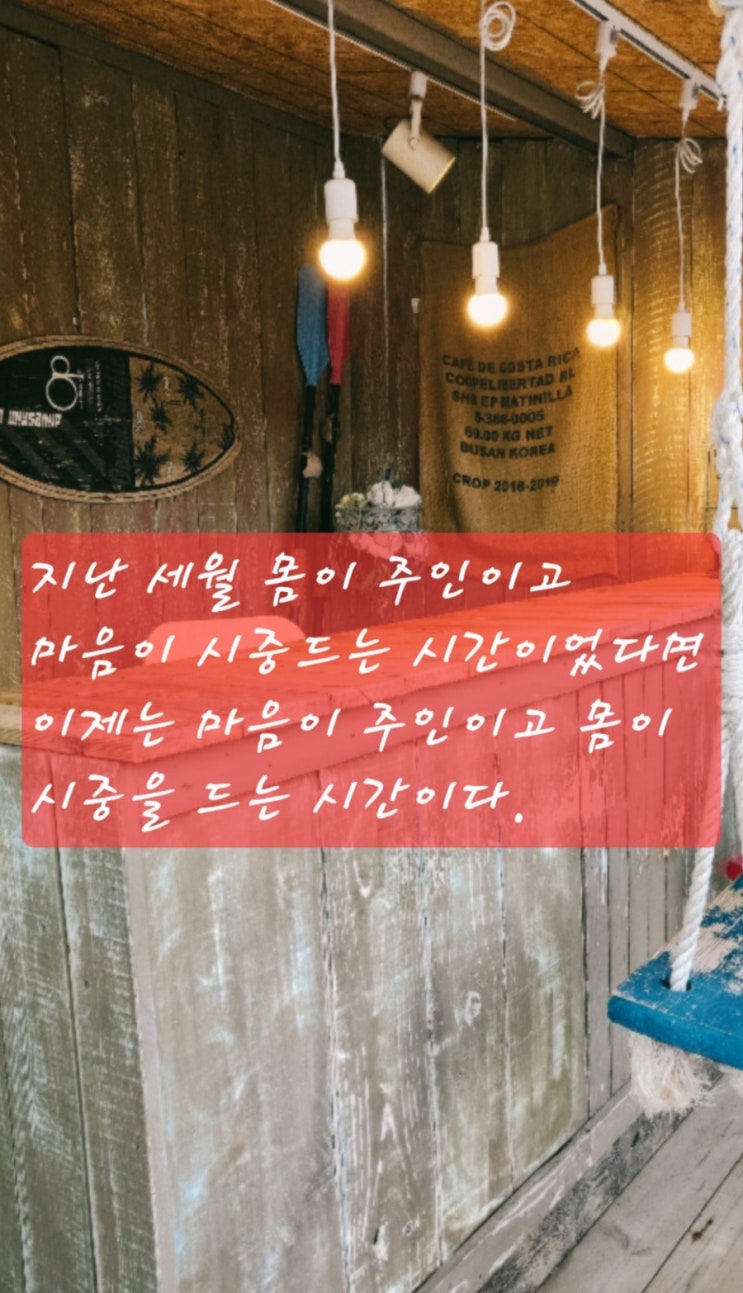 CAFE DE COSTA RICA
COOPELIBERTAD RL
SHB EP MATINILLA
5-366-0005
69.00 KG NET
BUSAN KOREA
CROP 2018-2019
지난 세월 몸이 주인이고
마음이 시중드는 시간이었다면
이제는 마음이 주인이고 몸이
시중을 드는 시간이다.